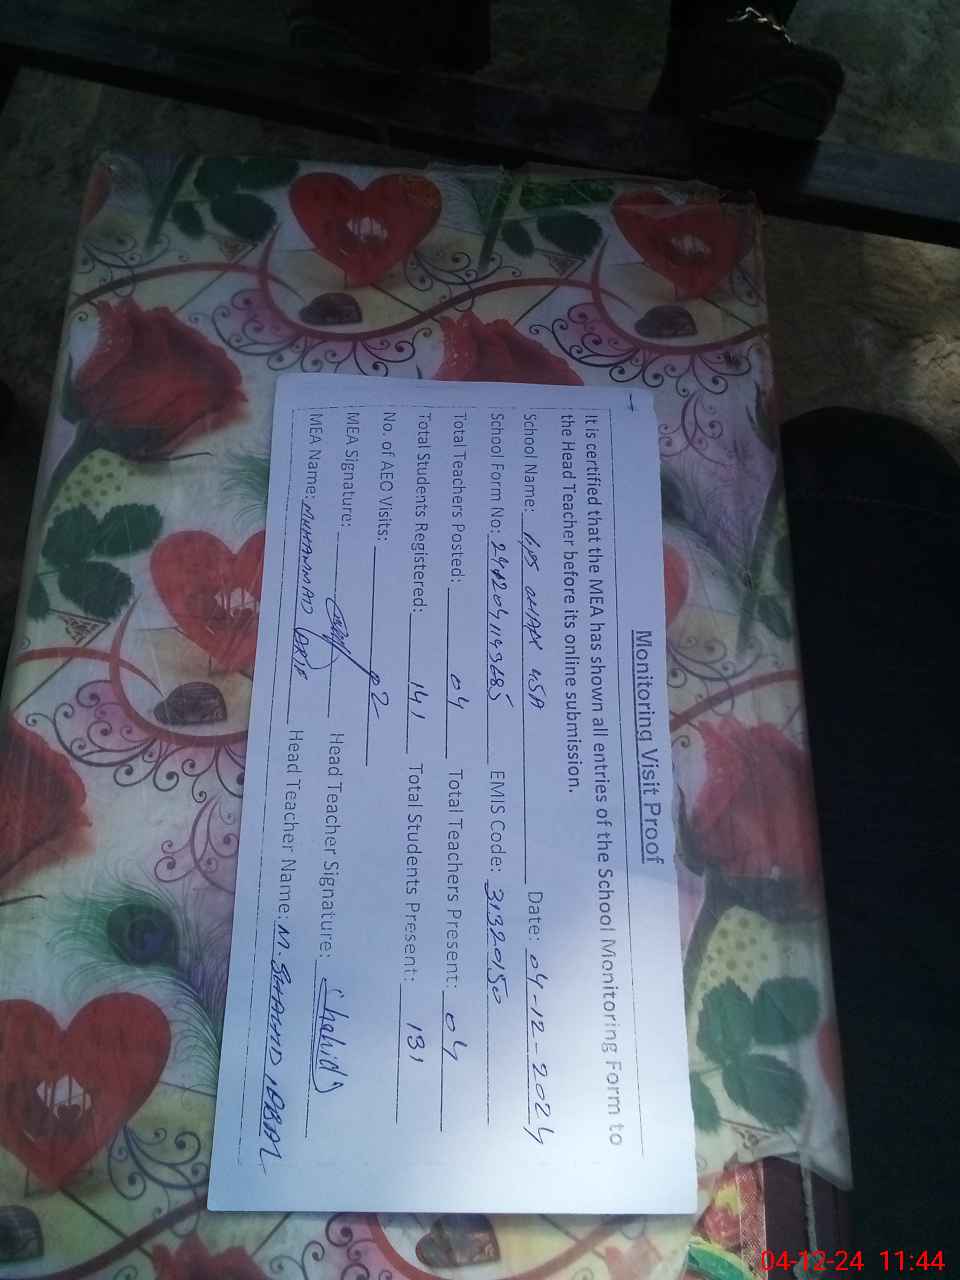 Monitoring Visit Proof
It is certified that the MEA has shown all entries of the School Monitoring Form to
the Head Teacher before its online submission.
School Name: GPS Date: 04-12-2024
School Form No: EMIS Code: 31320150
Total Teachers Posted: 04 Total Teachers Present: 04
Total Students Registered: 141 Total Students Present: 131
No. of AEO Visits: 02
MEA Signature: Head Teacher Signature: Shahid
MEA Name: MUHAMMAD ARIF Head Teacher Name: M. SHAHID IQBAL
04-12-24 11:44